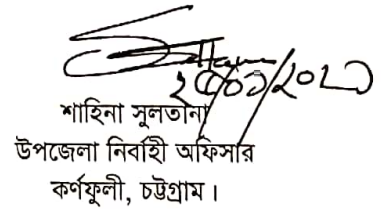 শাহিনা সুলতানা
উপজেলা নির্বাহী অফিসার
কর্ণফুলী, চট্টগ্রাম।